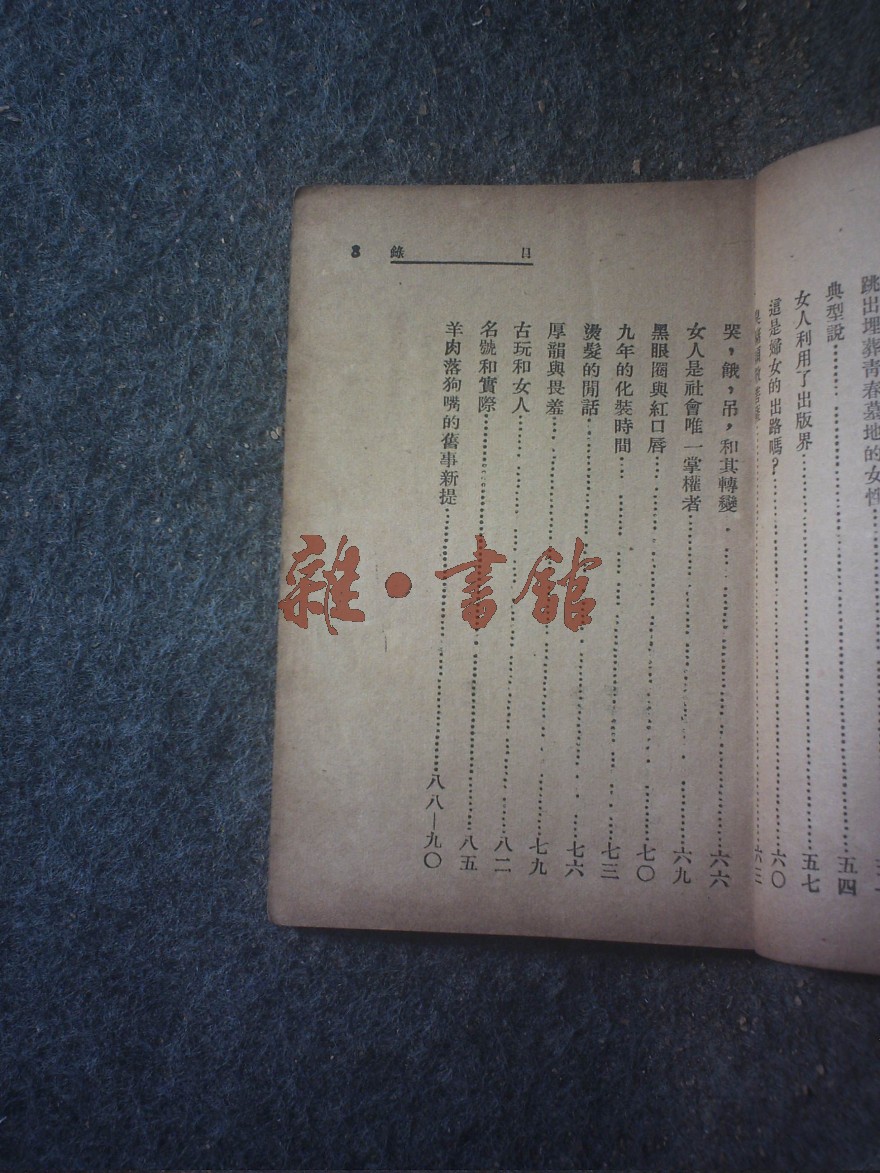 跳出埋葬青春墓地的女性
典型說……五四
女人利用了出版界……五七
這是婦女的出路嗎？……六〇
六三
哭，餓，吊，和其轉變……六六
女人是社會唯一掌權者……六九
黑眼圈與紅口唇……七〇
九年的化裝時間……七三
燙髮的閒話……七六
厚韻與畏羞……七九
古玩和女人……八二
名號和實際……八五
羊肉落狗嘴的舊事新提……八八—九〇
目錄
3
雜·書館